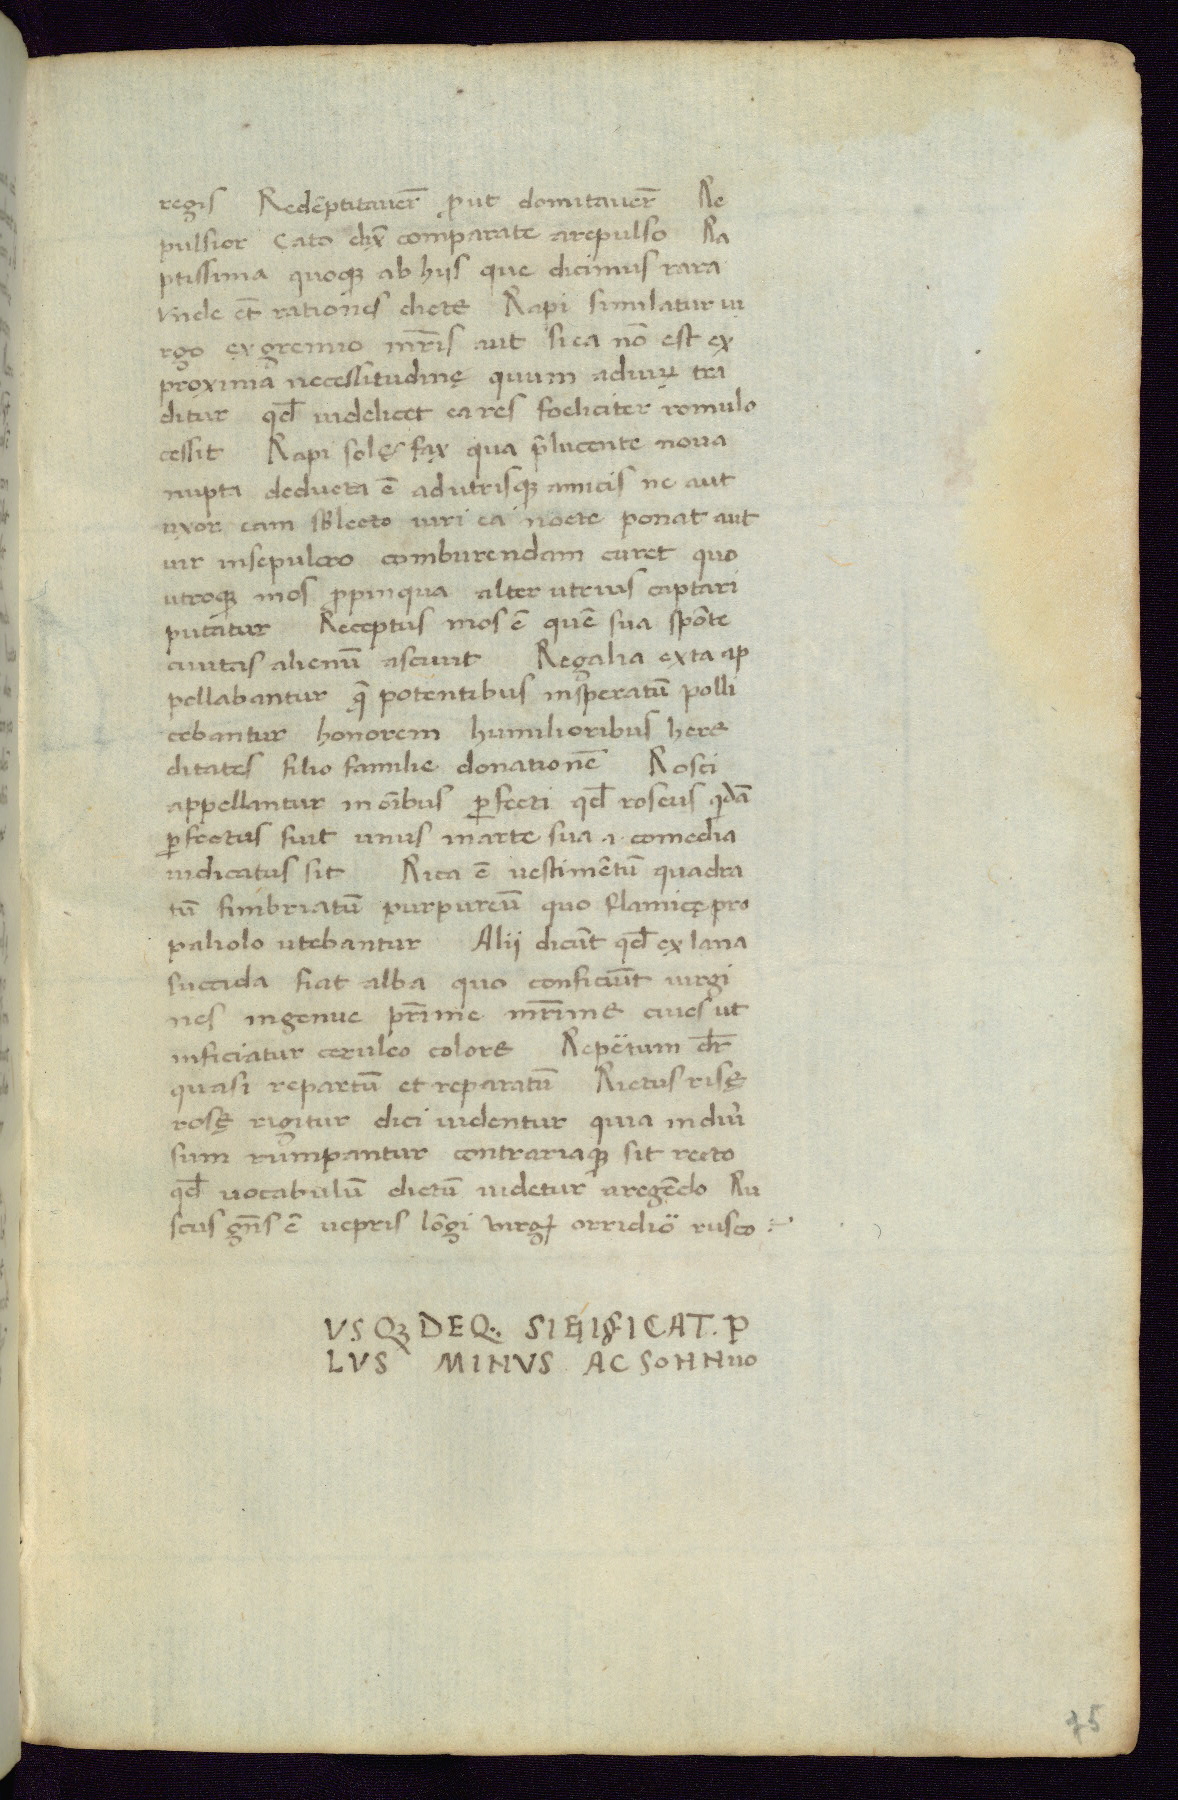 regis Redēptitauer̄ ꝓut domitauer̄ Re
pulsior Cato dix̄ comparate arepulso Ra
ptissima quoqꝫ ab hijs que dicimus rara
vnde et̄ rationes dicte Rapi simulatur ui
rgo ex gremio mr̄is aut si ea nō est ex
proxima necessitudine quum aduiꝝ tra
ditur qd̄ uidelicet ea res foeliciter romulo
cessit Rapi solet fax qua p̄lucente noua
nupta deducta ē ad utrisqꝫ amicis ne aut
uxor eam sb̄lecto uiri ea nocte ponat aut
uir insepulcro comburendam curet quo
utroqꝫ mos ꝓpinqua alter utrius captari
putatur Receptus mos ē quē sua spōte
ciuitas alienū asciuit Regalia exta ap
pellabantur q̄ potentibus insperatū polli
cebantur honorem humilioribus here
ditates filio familie donationē Rosci
appellantur in oībus ꝑfecti qd̄ roscus qdā
ꝑfectus fuit unus inarte sua .i. comedia
iudicatus sit Rica ē uestimētū quadra
tū fimbriatū purpureū quo flamicę pro
paliolo utebantur Alij dicūt qd̄ ex lana
succida fiat alba quo conficiūt uirgi
nes ingenue pr̄ime mr̄ime ciues ut
inficiatur ceruleo colore Repētum dr̄
quasi repartū et reparatū Rictus risę
rosę rigitur dici uidentur quia indiu͛
sum rumpantur contrariaqꝫ sit recto
qd̄ uocabulū dictū uidetur aregēdo Ru
scus gn̄s ē uepris lōgi virgꝭ orridiō rusco

VSQꝫ DEQꝫ SIGNIFICAT. P
LVS MINVS AC SONNuo

75